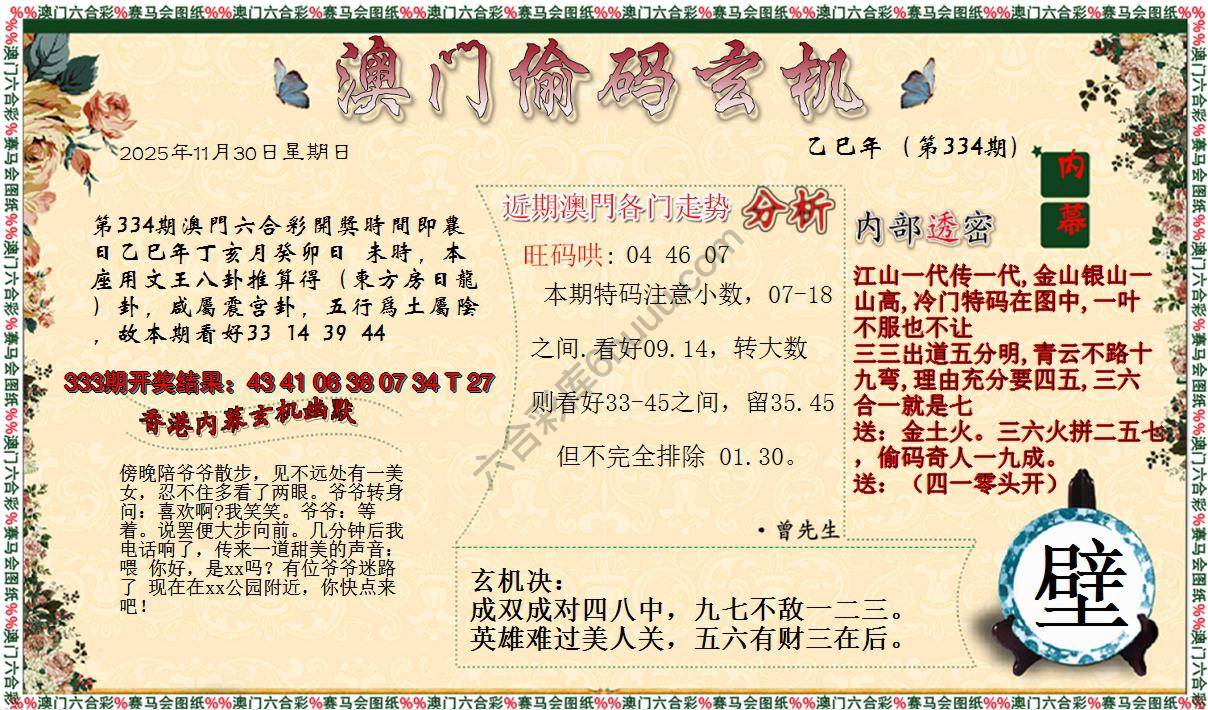 %%澳门六合彩%赛马会图纸%%澳门六合彩%赛马会图纸%%澳门六合彩%赛马会图纸%%澳门六合彩%赛马会图纸%%澳门六合彩%赛马会图纸%%澳门六合彩%赛马会图纸%%
澳门偷码玄机
2025年11月30日星期日
乙巳年（第334期）
内幕
第334期澳門六合彩開獎時間即農
日乙巳年丁亥月癸卯日 未時，本
座用文王八卦推算得（東方房日龍
）卦，咸屬震宫卦，五行爲土屬陰
，故本期看好33 14 39 44
333期开奖结果：43 41 06 38 07 34 T 27
香港内幕玄机幽默
傍晚陪爷爷散步，见不远处有一美
女，忍不住多看了两眼。爷爷转身
问：喜欢啊?我笑笑。爷爷：等
着。说罢便大步向前。几分钟后我
电话响了，传来一道甜美的声音：
喂 你好，是xx吗？有位爷爷迷路
了 现在在xx公园附近，你快点来
吧！
近期澳門各门走势 分析
旺码哄: 04 46 07
本期特码注意小数，07-18
之间.看好09.14，转大数
则看好33-45之间，留35.45
但不完全排除 01.30。
·曾先生
内部透密
江山一代传一代,金山银山一
山高,冷门特码在图中,一叶
不服也不让
三三出道五分明,青云不路十
九弯,理由充分要四五,三六
合一就是七
送：金土火。三六火拼二五七
，偷码奇人一九成。
送：（四一零头开）
玄机决：
成双成对四八中，九七不敌一二三。
英雄难过美人关，五六有财三在后。
壁
六合彩库6huuu.com
%%澳门六合彩%赛马会图纸%%澳门六合彩%赛马会图纸%%澳门六合彩%赛马会图纸%%澳门六合彩%赛马会图纸%%澳门六合彩%赛马会图纸%%澳门六合彩%赛马会图纸%%